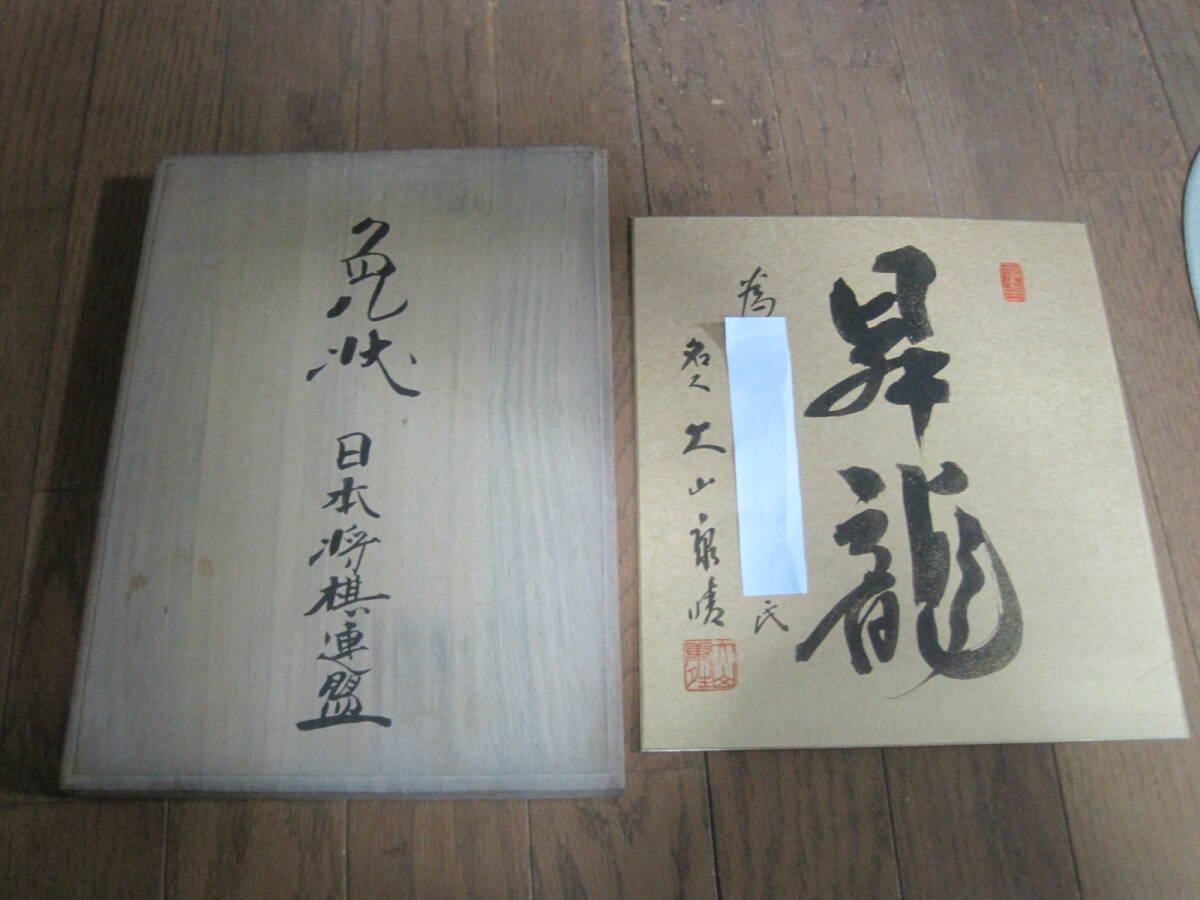 免状
日本将棋連盟
昇龍
為 氏
名人 大山康晴